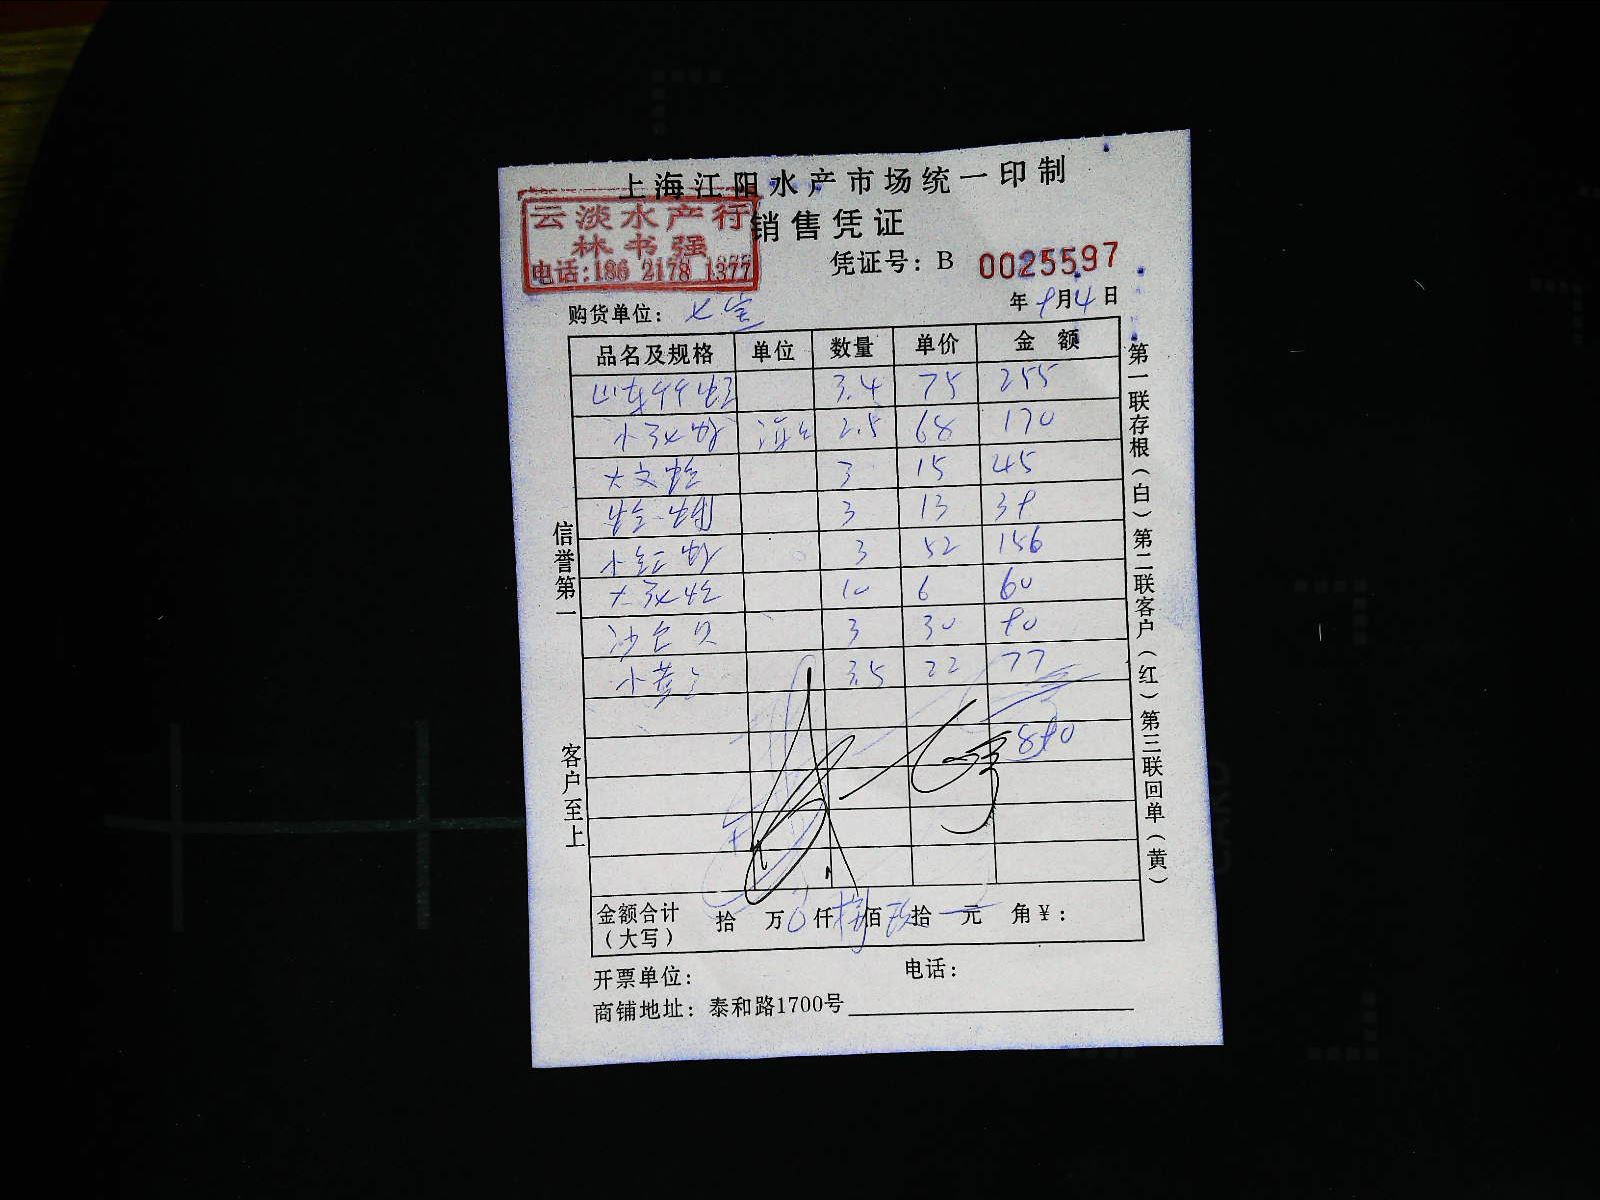 上海江阳水产市场统一印制
销售凭证
云淡水产行
林书强
电话:186 2178 1377
凭证号: B 0025597
购货单位: 七宝
年 9月4日
品名及规格 单位 数量 单价 金额
3.4 75 255
2.5 68 170
大文蛤 3 15 45
3 13 39
3 52 156
10 6 60
沙白贝 3 30 90
小黄 3.5 22 77
890
信誉第一
客户至上
第一联存根(白) 第二联客户(红) 第三联回单(黄)
金额合计(大写) 拾 万 仟 捌佰 玖拾 元 角 ¥:
开票单位: 电话:
商铺地址: 泰和路1700号